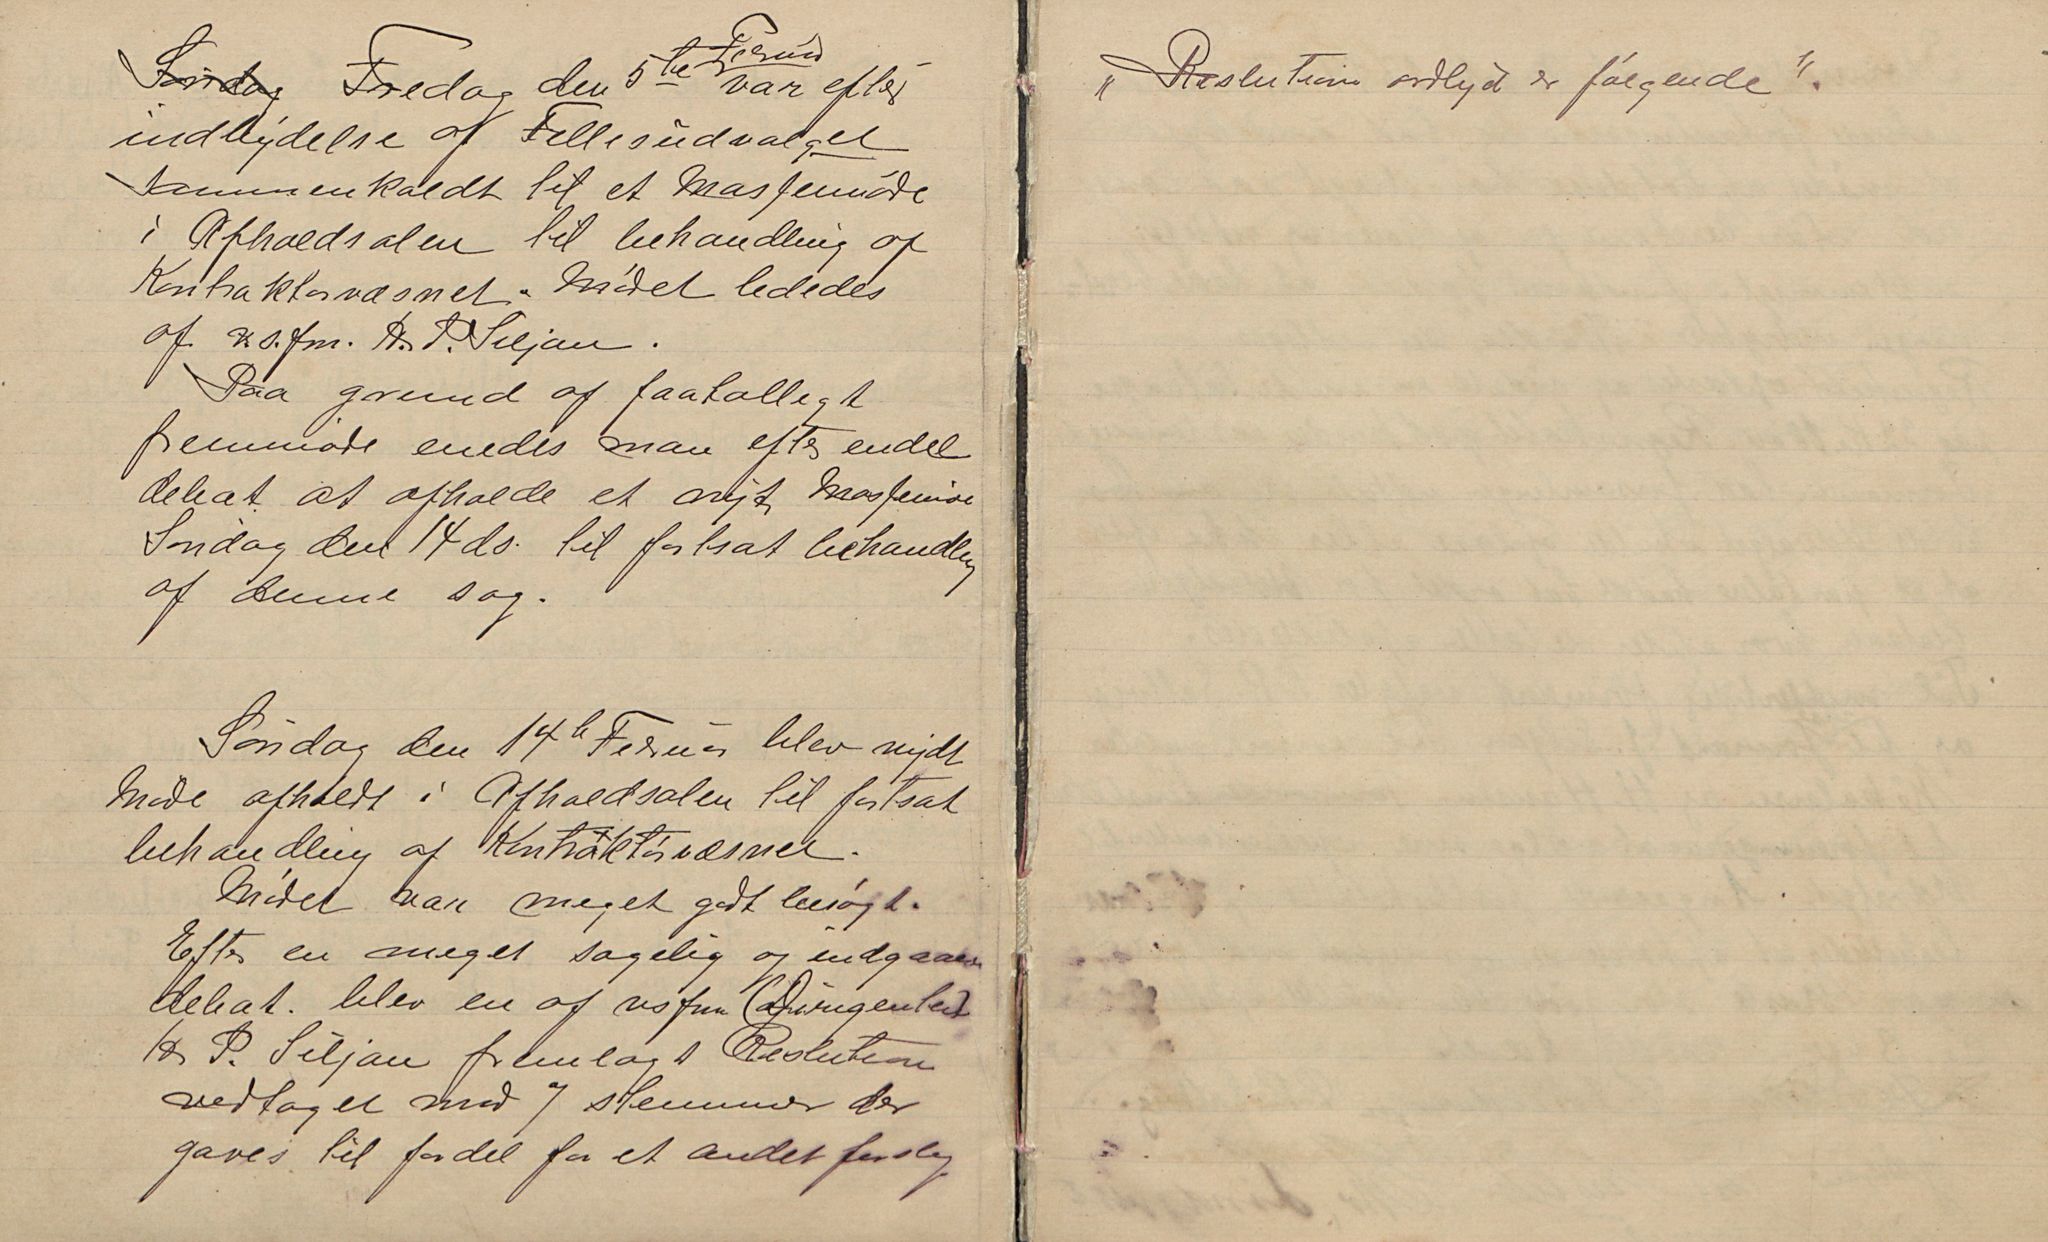 Søndag Fredag den 5te Feruar var efter
indbydelse af Fellesudvalget
sammenkaldt til et Massemøde
i Afholdsalen til behandling af
Kontraktorvæsnet. Mødet lededes
af v.s.fm. H. P. Siljan.
Paa grund af faatalligt
fremmøde enedes man efter endel
debat at afholde et nyt Massemøde
Søndag den 14 ds. til fortsat behandling
af denne sag.
Søndag den 14de Feruar blev nydt
Møde afholdt i Afholdsalen til fortsat
behandling af Kontraktorvæsnet.
Mødet var meget godt besøgt.
Efter en meget sagelig og indgaaende
debat. blev en af vsfm (Dirigenten)
Hr P. Siljan fremlagt Reslution
vedtaget mod 7 stemmer der
gaves til fordel for et andet forslag
„Reslution ordlyd er følgende".